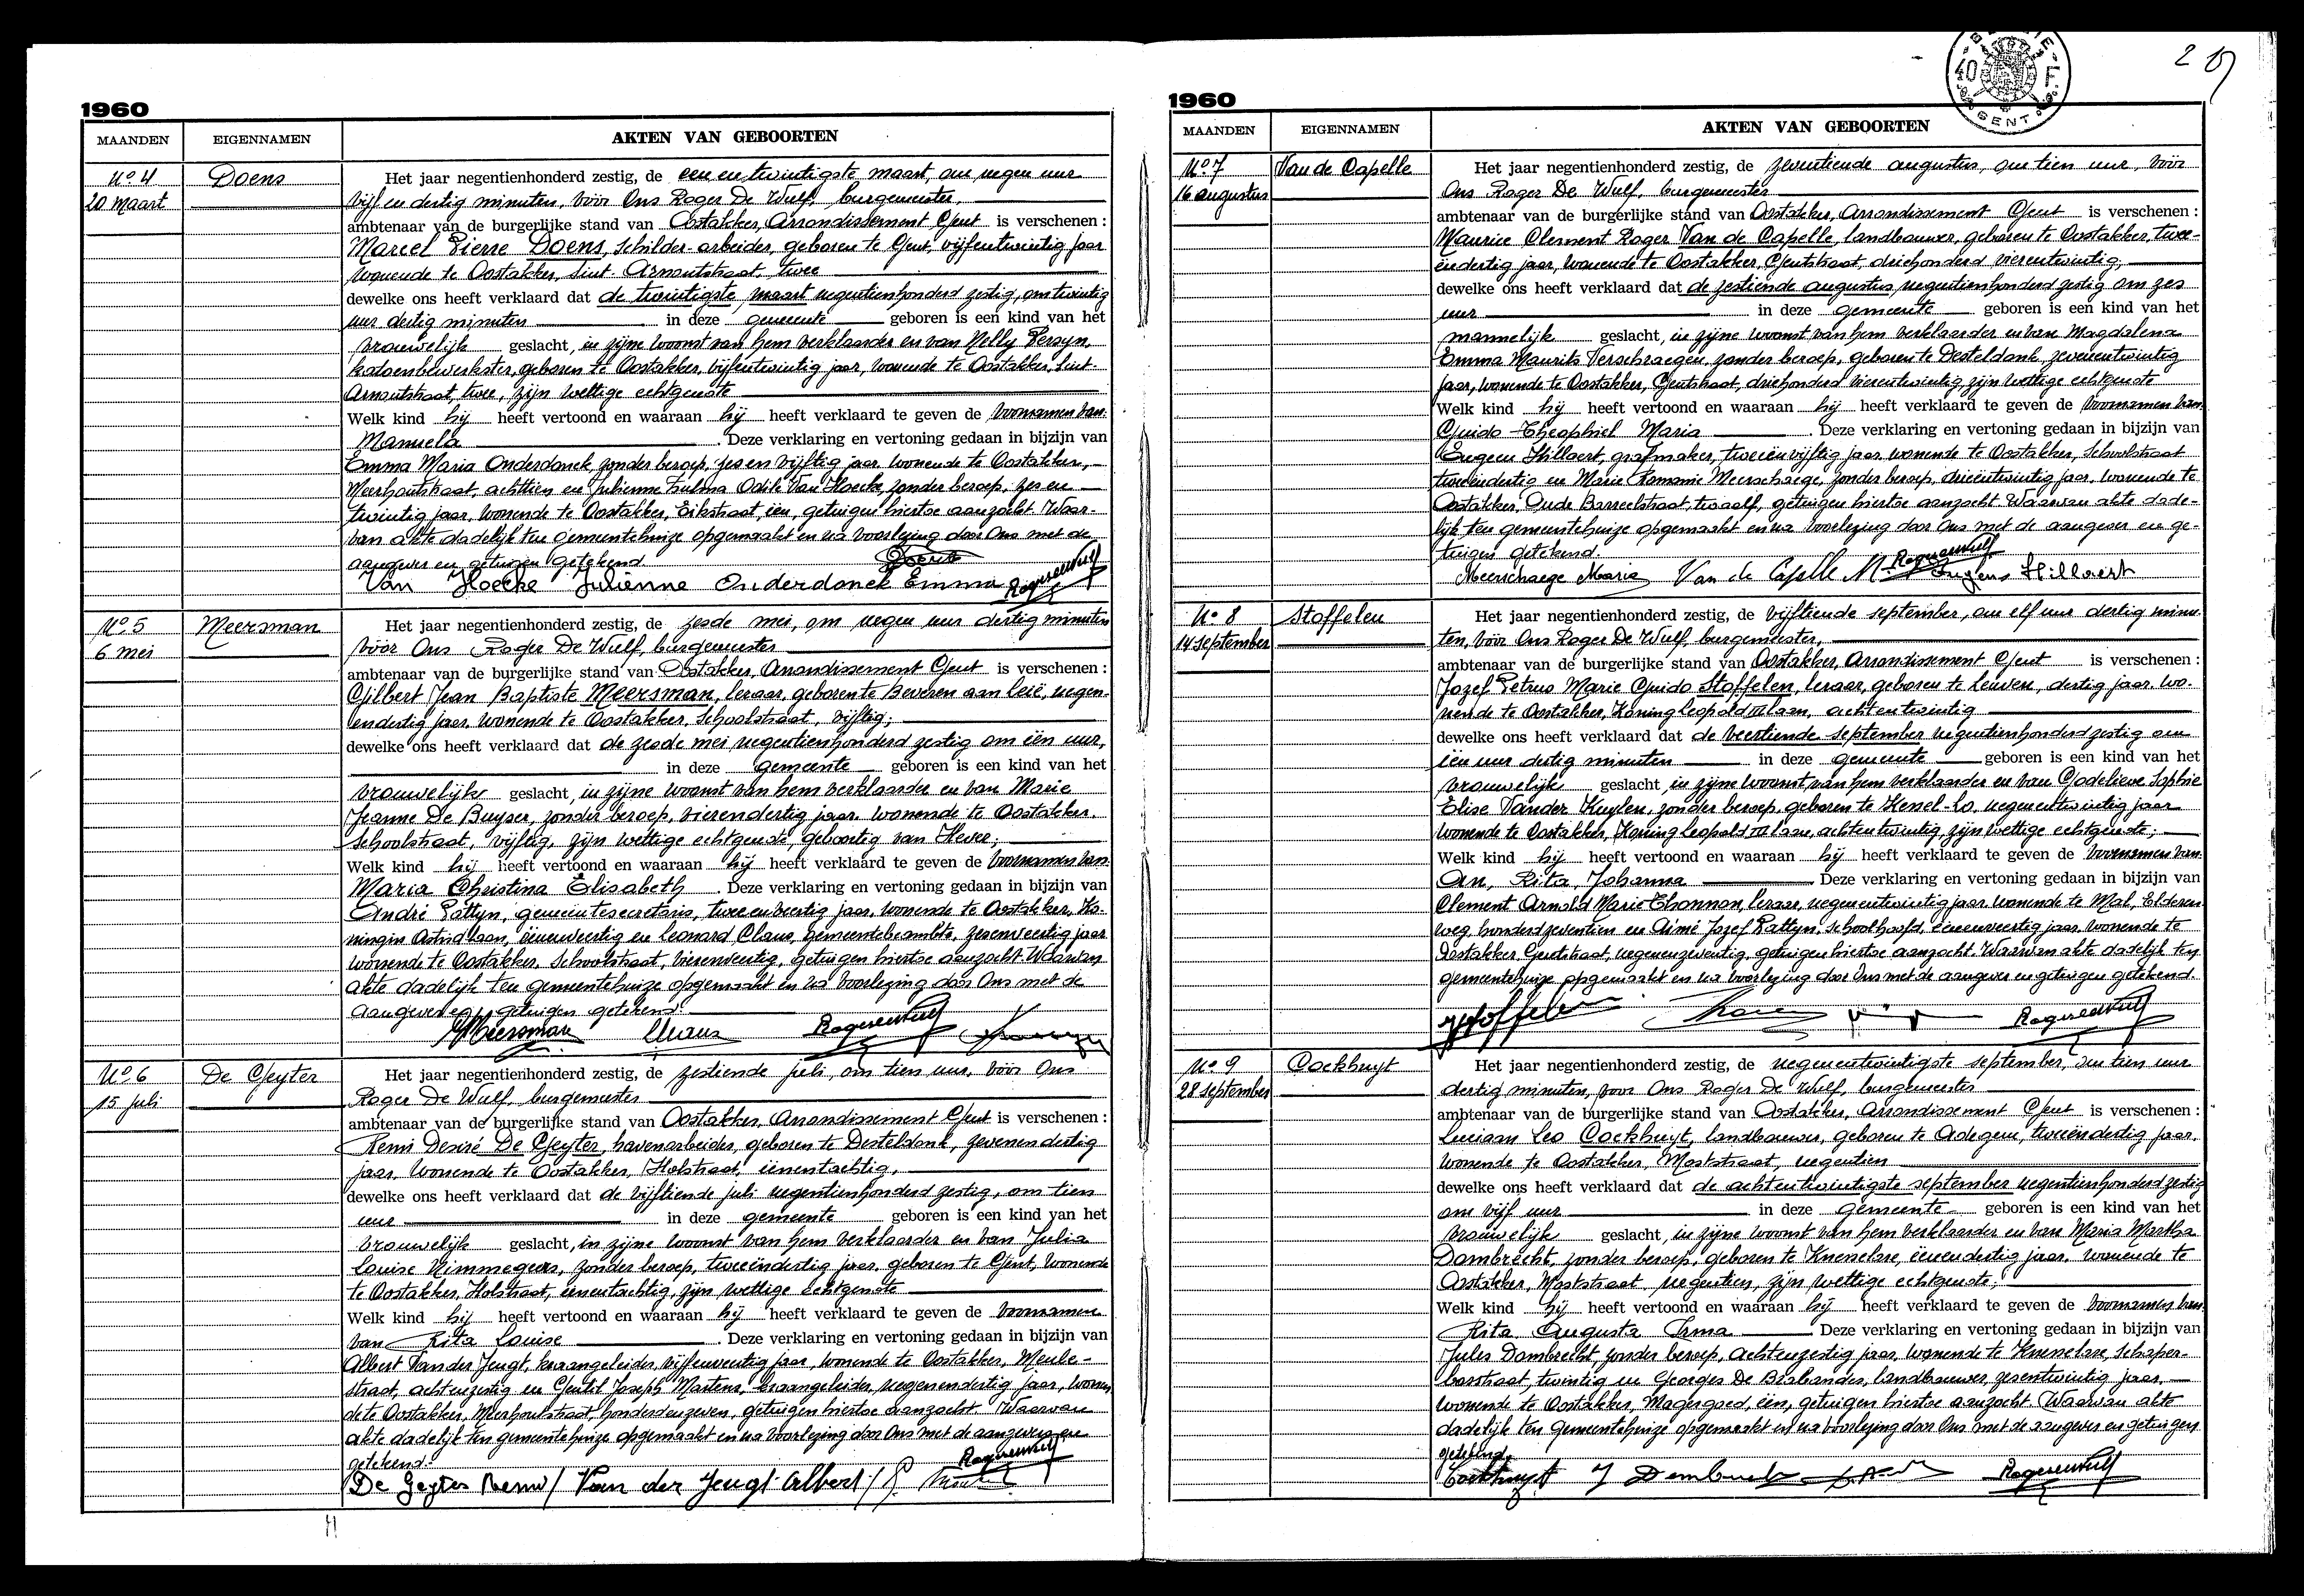 1960
MAANDEN EIGENNAMEN AKTEN VAN GEBOORTEN
No 4 Doens Het jaar negentienhonderd zestig, de een en twintigste maart, om negen uur
20 maart vijf en dertig minuten, vóór Ons Roger De Wulf, burgemeester,
ambtenaar van de burgerlijke stand van Oostakker, Arrondissement Gent is verschenen :
Marcel Pierre Doens, schilder-arbeider, geboren te Gent, vijfentwintig jaar
wonende te Oostakker, Sint Arnoutstraat, twee
dewelke ons heeft verklaard dat de twintigste maart negentienhonderd zestig, om twintig
uur dertig minuten in deze gemeente geboren is een kind van het
vrouwelijk geslacht, in zijne woonst van hem verklaarder en van Nelly Persyn,
katoenbewerkster, geboren te Oostakker, vijfentwintig jaar, wonende te Oostakker, Sint-
Arnoutstraat, twee, zijn wettige echtgenote
Welk kind hij heeft vertoond en waaraan hij heeft verklaard te geven de voornamen van
Manuela . Deze verklaring en vertoning gedaan in bijzijn van
Emma Maria Onderdonck, zonder beroep, zes en vijftig jaar, wonende te Oostakker,
Meerhoutstraat, achttien en Julienne Zulma Odile Van Hoecke, zonder beroep, zes en
twintig jaar, wonende te Oostakker, Eikstraat, één, getuigen hiertoe aanzocht. Waar-
van akte dadelijk ten gemeentehuize opgemaakt en na voorlezing door Ons met de
aangever en getuigen getekend. Doens
Van Hoecke Julienne Onderdonck Emma Roger De Wulf
No 5 Meersman Het jaar negentienhonderd zestig, de zesde mei, om negen uur dertig minuten
6 mei vóór Ons Roger De Wulf, burgemeester
ambtenaar van de burgerlijke stand van Oostakker, Arrondissement Gent is verschenen :
Gilbert Jean Baptiste Meersman, leraar, geboren te Beveren aan Leie, negen-
endertig jaar, wonende te Oostakker, Schoolstraat, vijftig;
dewelke ons heeft verklaard dat de zesde mei negentienhonderd zestig om één uur,
in deze gemeente geboren is een kind van het
vrouwelijke geslacht, in zijne woonst van hem verklaarder en van Marie
Jeanne De Buyser, zonder beroep, vierendertig jaar, wonende te Oostakker,
Schoolstraat, vijftig, zijn wettige echtgenote, geboortig van Hever;
Welk kind hij heeft vertoond en waaraan hij heeft verklaard te geven de voornamen van
Maria Christina Elisabeth . Deze verklaring en vertoning gedaan in bijzijn van
André Pattyn, gemeentesecretaris, twee en veertig jaar, wonende te Oostakker, Ko-
ningin Astridlaan, éénenveertig en Leonard Claus, gemeentebeambte, zevenenveertig jaar
wonende te Oostakker, Schoolstraat, vierenveertig, getuigen hiertoe aanzocht. Waarvan
akte dadelijk ten gemeentehuize opgemaakt en na voorlezing door Ons met de
aangever en getuigen getekend.
Meersman Claus Roger De Wulf
No 6 De Geyter Het jaar negentienhonderd zestig, de zestiende juli, om tien uur, vóór Ons
15 juli Roger De Wulf, burgemeester
ambtenaar van de burgerlijke stand van Oostakker, Arrondissement Gent is verschenen :
Remi Desiré De Geyter, havenarbeider, geboren te Desteldonk, zevenendertig
jaar, wonende te Oostakker, Holstraat, éénentachtig,
dewelke ons heeft verklaard dat de vijftiende juli negentienhonderd zestig, om tien
uur in deze gemeente geboren is een kind van het
vrouwelijk geslacht, in zijne woonst van hem verklaarder en van Julia
Louise Nimmegeers, zonder beroep, tweeëndertig jaar, geboren te Gent, wonende
te Oostakker, Holstraat, éénentachtig, zijn wettige echtgenote
Welk kind hij heeft vertoond en waaraan hij heeft verklaard te geven de voornamen
van Rita Louise . Deze verklaring en vertoning gedaan in bijzijn van
Albert Van der Jeugt, kraangeleider, vijfenveertig jaar, wonende te Oostakker, Meule-
straat, achtenzestig en Gentil Joseph Martens, kraangeleider, negenendertig jaar, wonen
de te Oostakker, Meerhoutstraat, honderdenzeven, getuigen hiertoe aanzocht. Waarvan
akte dadelijk ten gemeentehuize opgemaakt en na voorlezing door Ons met de aangever en
getekend. Roger De Wulf
De Geyter Remi / Van der Jeugt Albert /
1960
BELGIE 40 F GENT
MAANDEN EIGENNAMEN AKTEN VAN GEBOORTEN
No 7 Van de Capelle Het jaar negentienhonderd zestig, de zeventiende augustus, om tien uur, vóór
16 augustus Ons Roger De Wulf, burgemeester
ambtenaar van de burgerlijke stand van Oostakker, Arrondissement Gent is verschenen :
Maurice Clement Roger Van de Capelle, landbouwer, geboren te Oostakker, twee-
endertig jaar, wonende te Oostakker, Gentstraat, driehonderd vierentwintig,
dewelke ons heeft verklaard dat de zestiende augustus, negentienhonderd zestig om zes
uur in deze gemeente geboren is een kind van het
mannelijk geslacht, in zijne woonst van hem verklaarder en van Magdalena
Emma Maurits Verschraegen, zonder beroep, geboren te Desteldonk, zevenentwintig
jaar, wonende te Oostakker, Gentstraat, driehonderd vierentwintig, zijn wettige echtgenote
Welk kind hij heeft vertoond en waaraan hij heeft verklaard te geven de voornamen van
Guido Theophiel Maria . Deze verklaring en vertoning gedaan in bijzijn van
Eugeen Hillaert, grafmaker, tweeënvijftig jaar, wonende te Oostakker, Schoolstraat
tweeëndertig en Marie Romanie Meerschaege, zonder beroep, drieëntwintig jaar, wonende te
Oostakker, Oude Barreelstraat, twaalf, getuigen hiertoe aanzocht. Waarvan akte dade-
lijk ten gemeentehuize opgemaakt en na voorlezing door Ons met de aangever en ge-
tuigen getekend. Roger De Wulf
Meerschaege Maria Van de Capelle M. Eugens Hillaert
No 8 Stoffelen Het jaar negentienhonderd zestig, de vijftiende september, om elf uur dertig minu-
14 september ten, vóór Ons Roger De Wulf, burgemeester,
ambtenaar van de burgerlijke stand van Oostakker, Arrondissement Gent is verschenen :
Jozef Petrus Marie Guido Stoffelen, leraar, geboren te Leuven, dertig jaar, wo-
nende te Oostakker, Koning Leopold III laan, achtentwintig
dewelke ons heeft verklaard dat de veertiende september negentienhonderd zestig om
één uur dertig minuten in deze gemeente geboren is een kind van het
vrouwelijk geslacht, in zijne woonst van hem verklaarder en van Godelieve Sophie
Elise Vander Kuylen, zonder beroep, geboren te Kessel-Lo, negenentwintig jaar
wonende te Oostakker, Koning Leopold III laan, achtentwintig, zijn wettige echtgenote;
Welk kind hij heeft vertoond en waaraan hij heeft verklaard te geven de voornamen van
An, Rita, Johanna . Deze verklaring en vertoning gedaan in bijzijn van
Clement Arnold Marie Thonnon, leraar, negenentwintig jaar, wonende te Mal, Elderen
weg, honderd zeventien en Aimé Jozef Rattyn, schoolhoofd, éénenveertig jaar, wonende te
Oostakker, Gentstraat, getuigen hiertoe aanzocht. Waarvan akte dadelijk ten
gemeentehuize opgemaakt en na voorlezing door Ons met de aangever en getuigen getekend.
Stoffelen Roger De Wulf
No 9 Cockhuyt Het jaar negentienhonderd zestig, de negenentwintigste september, om tien uur
28 september dertig minuten, voor Ons Roger De Wulf, burgemeester
ambtenaar van de burgerlijke stand van Oostakker, Arrondissement Gent is verschenen :
Luciaan Leo Cockhuyt, landbouwer, geboren te Adegem, tweeëndertig jaar,
wonende te Oostakker, Moststraat, negentien
dewelke ons heeft verklaard dat de achtentwintigste september negentienhonderd zestig
om vijf uur in deze gemeente geboren is een kind van het
vrouwelijk geslacht, in zijne woonst van hem verklaarder en van Maria Martha
Dombrecht, zonder beroep, geboren te Knesselare, éénendertig jaar, wonende te
Oostakker, Moststraat, negentien, zijn wettige echtgenote;
Welk kind hij heeft vertoond en waaraan hij heeft verklaard te geven de voornamen van
Rita Augusta Irma . Deze verklaring en vertoning gedaan in bijzijn van
Jules Dombrecht, zonder beroep, achtenzestig jaar, wonende te Knesselare, Schaper-
bosstraat, twintig en Georges De Brabander, landbouwer, zesentwintig jaar,
wonende te Oostakker, Magergoed, één, getuigen hiertoe aanzocht. Waarvan akte
dadelijk ten gemeentehuize opgemaakt en na voorlezing door Ons met de aangever en getuigen
getekend.
Cockhuyt J Dombrecht Roger De Wulf